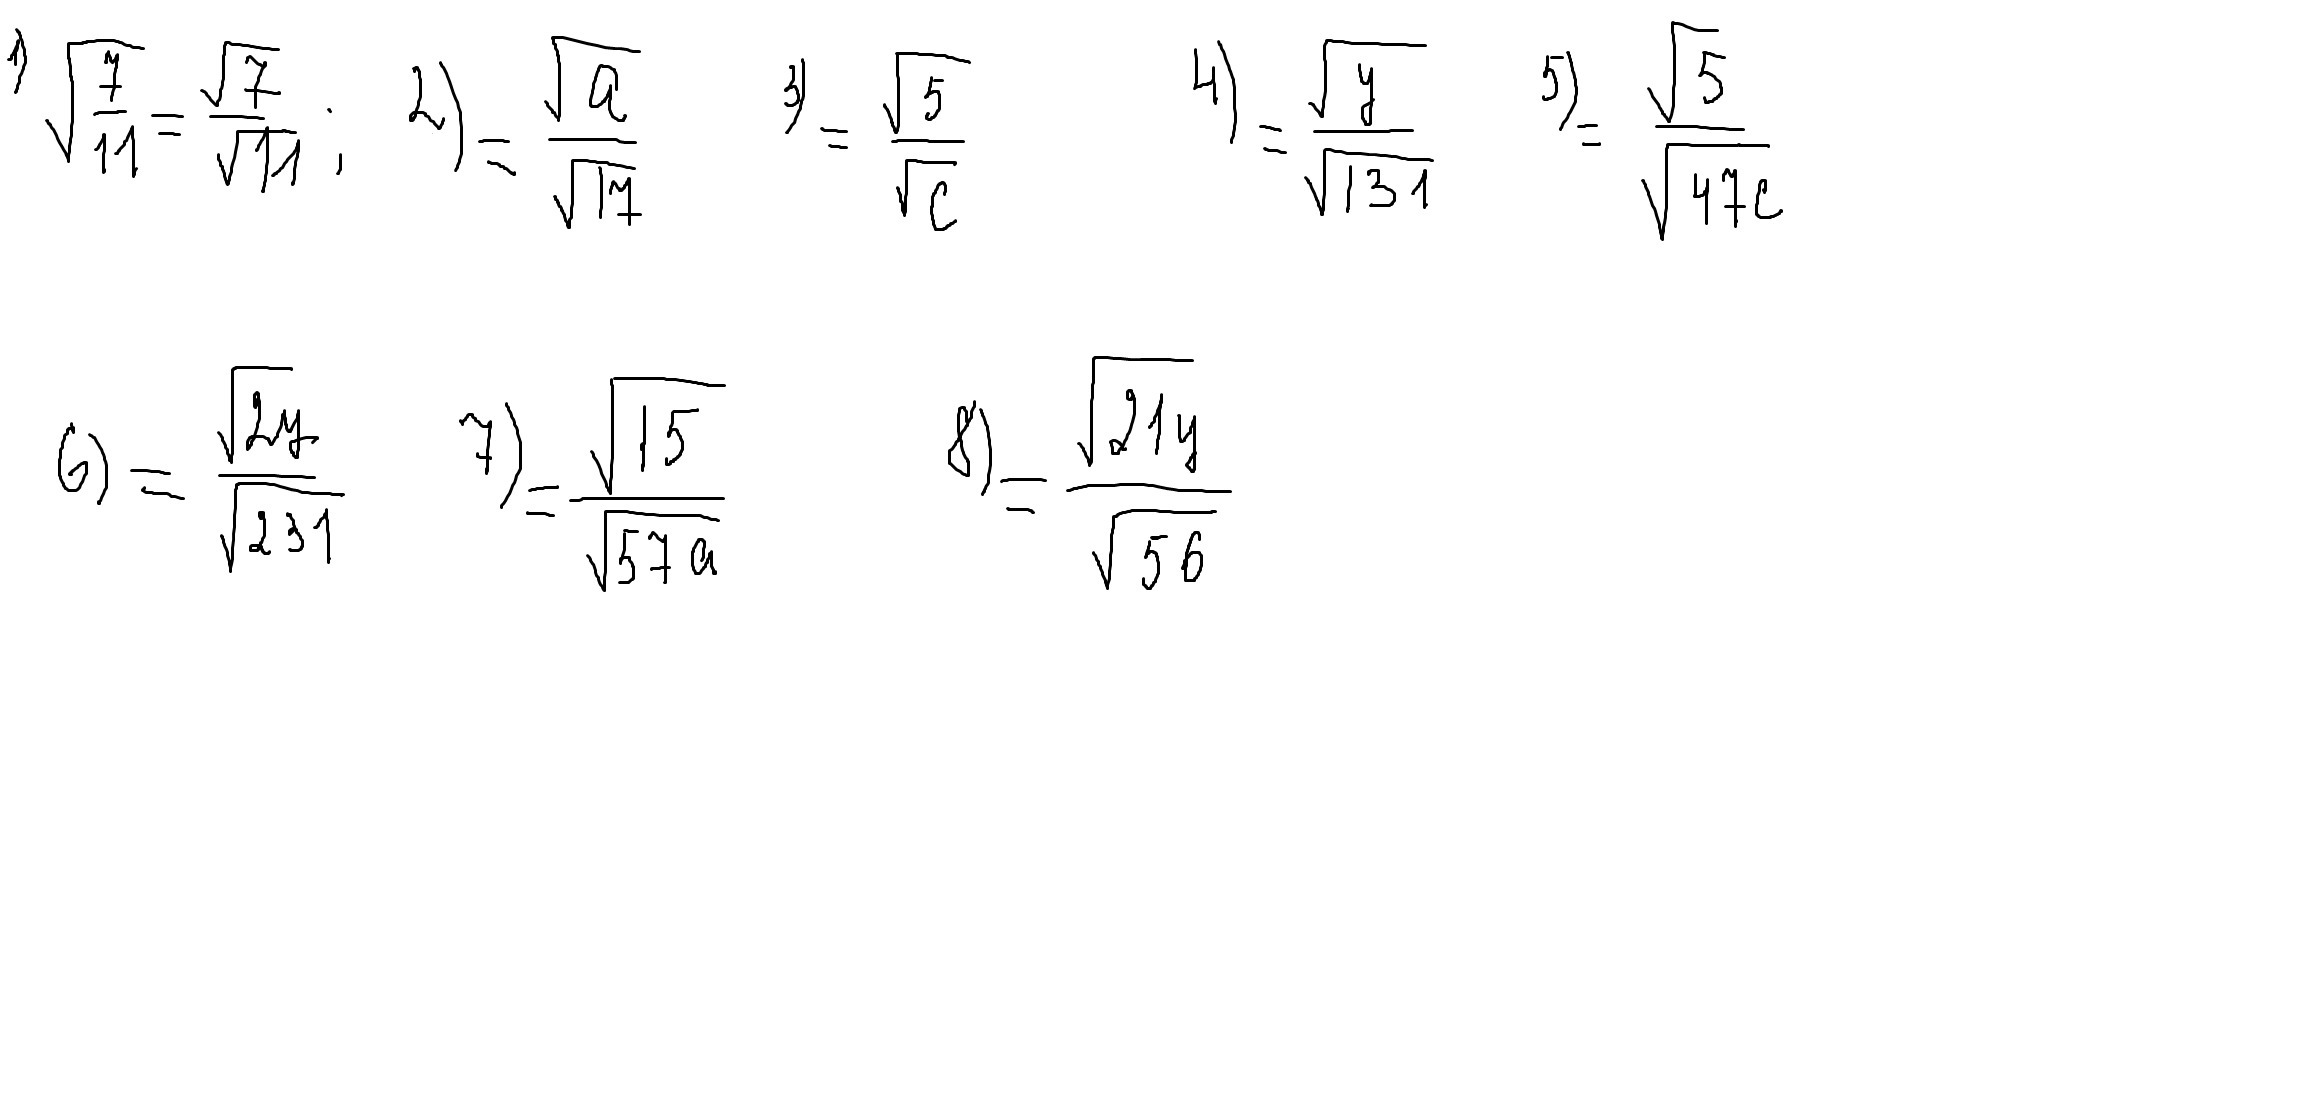 1) √(7/11) = √7/√11 ; 2) = √a/√17 3) = √5/√c 4) = √y/√131 5) = √5/√47c
6) = √2y/√231 7) = √15/√57a 8) = √21y/√56